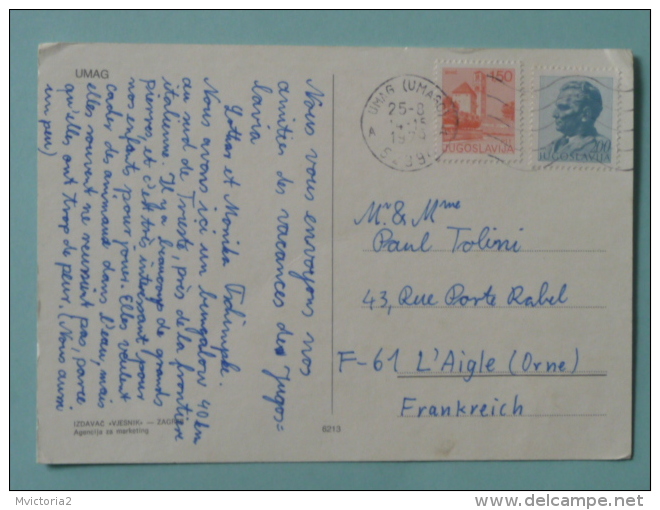 UMAG
Nous vous envoyons nos
amitiés des vacances de Jugos=
lavia
Lothar et Monika
Nous avons ici un bungalow 40 km
au sud de Trieste, près de la frontière
italienne. Il y a beaucoup de grands
pierres et c'est très intéressant pour
nos enfants pour jouer. Elles veulent
des animaux dans l'eau, mais
elles souvent ne réussient pas, parce
qu'elles ont trop de peur. (Nous aussi
un peu)
IZDAVAČ «VJESNIK» — ZAGREB
Agencija za marketing
6213
UMAG (UMAGO)
25-8
1.50
JUGOSLAVIJA
2.00
JUGOSLAVIJA
Mr & Mme
Paul Tolini
43, Rue Porte Rabel
F-61 L'Aigle (Orne)
Frankreich
Mvictoria2
delcampe.net